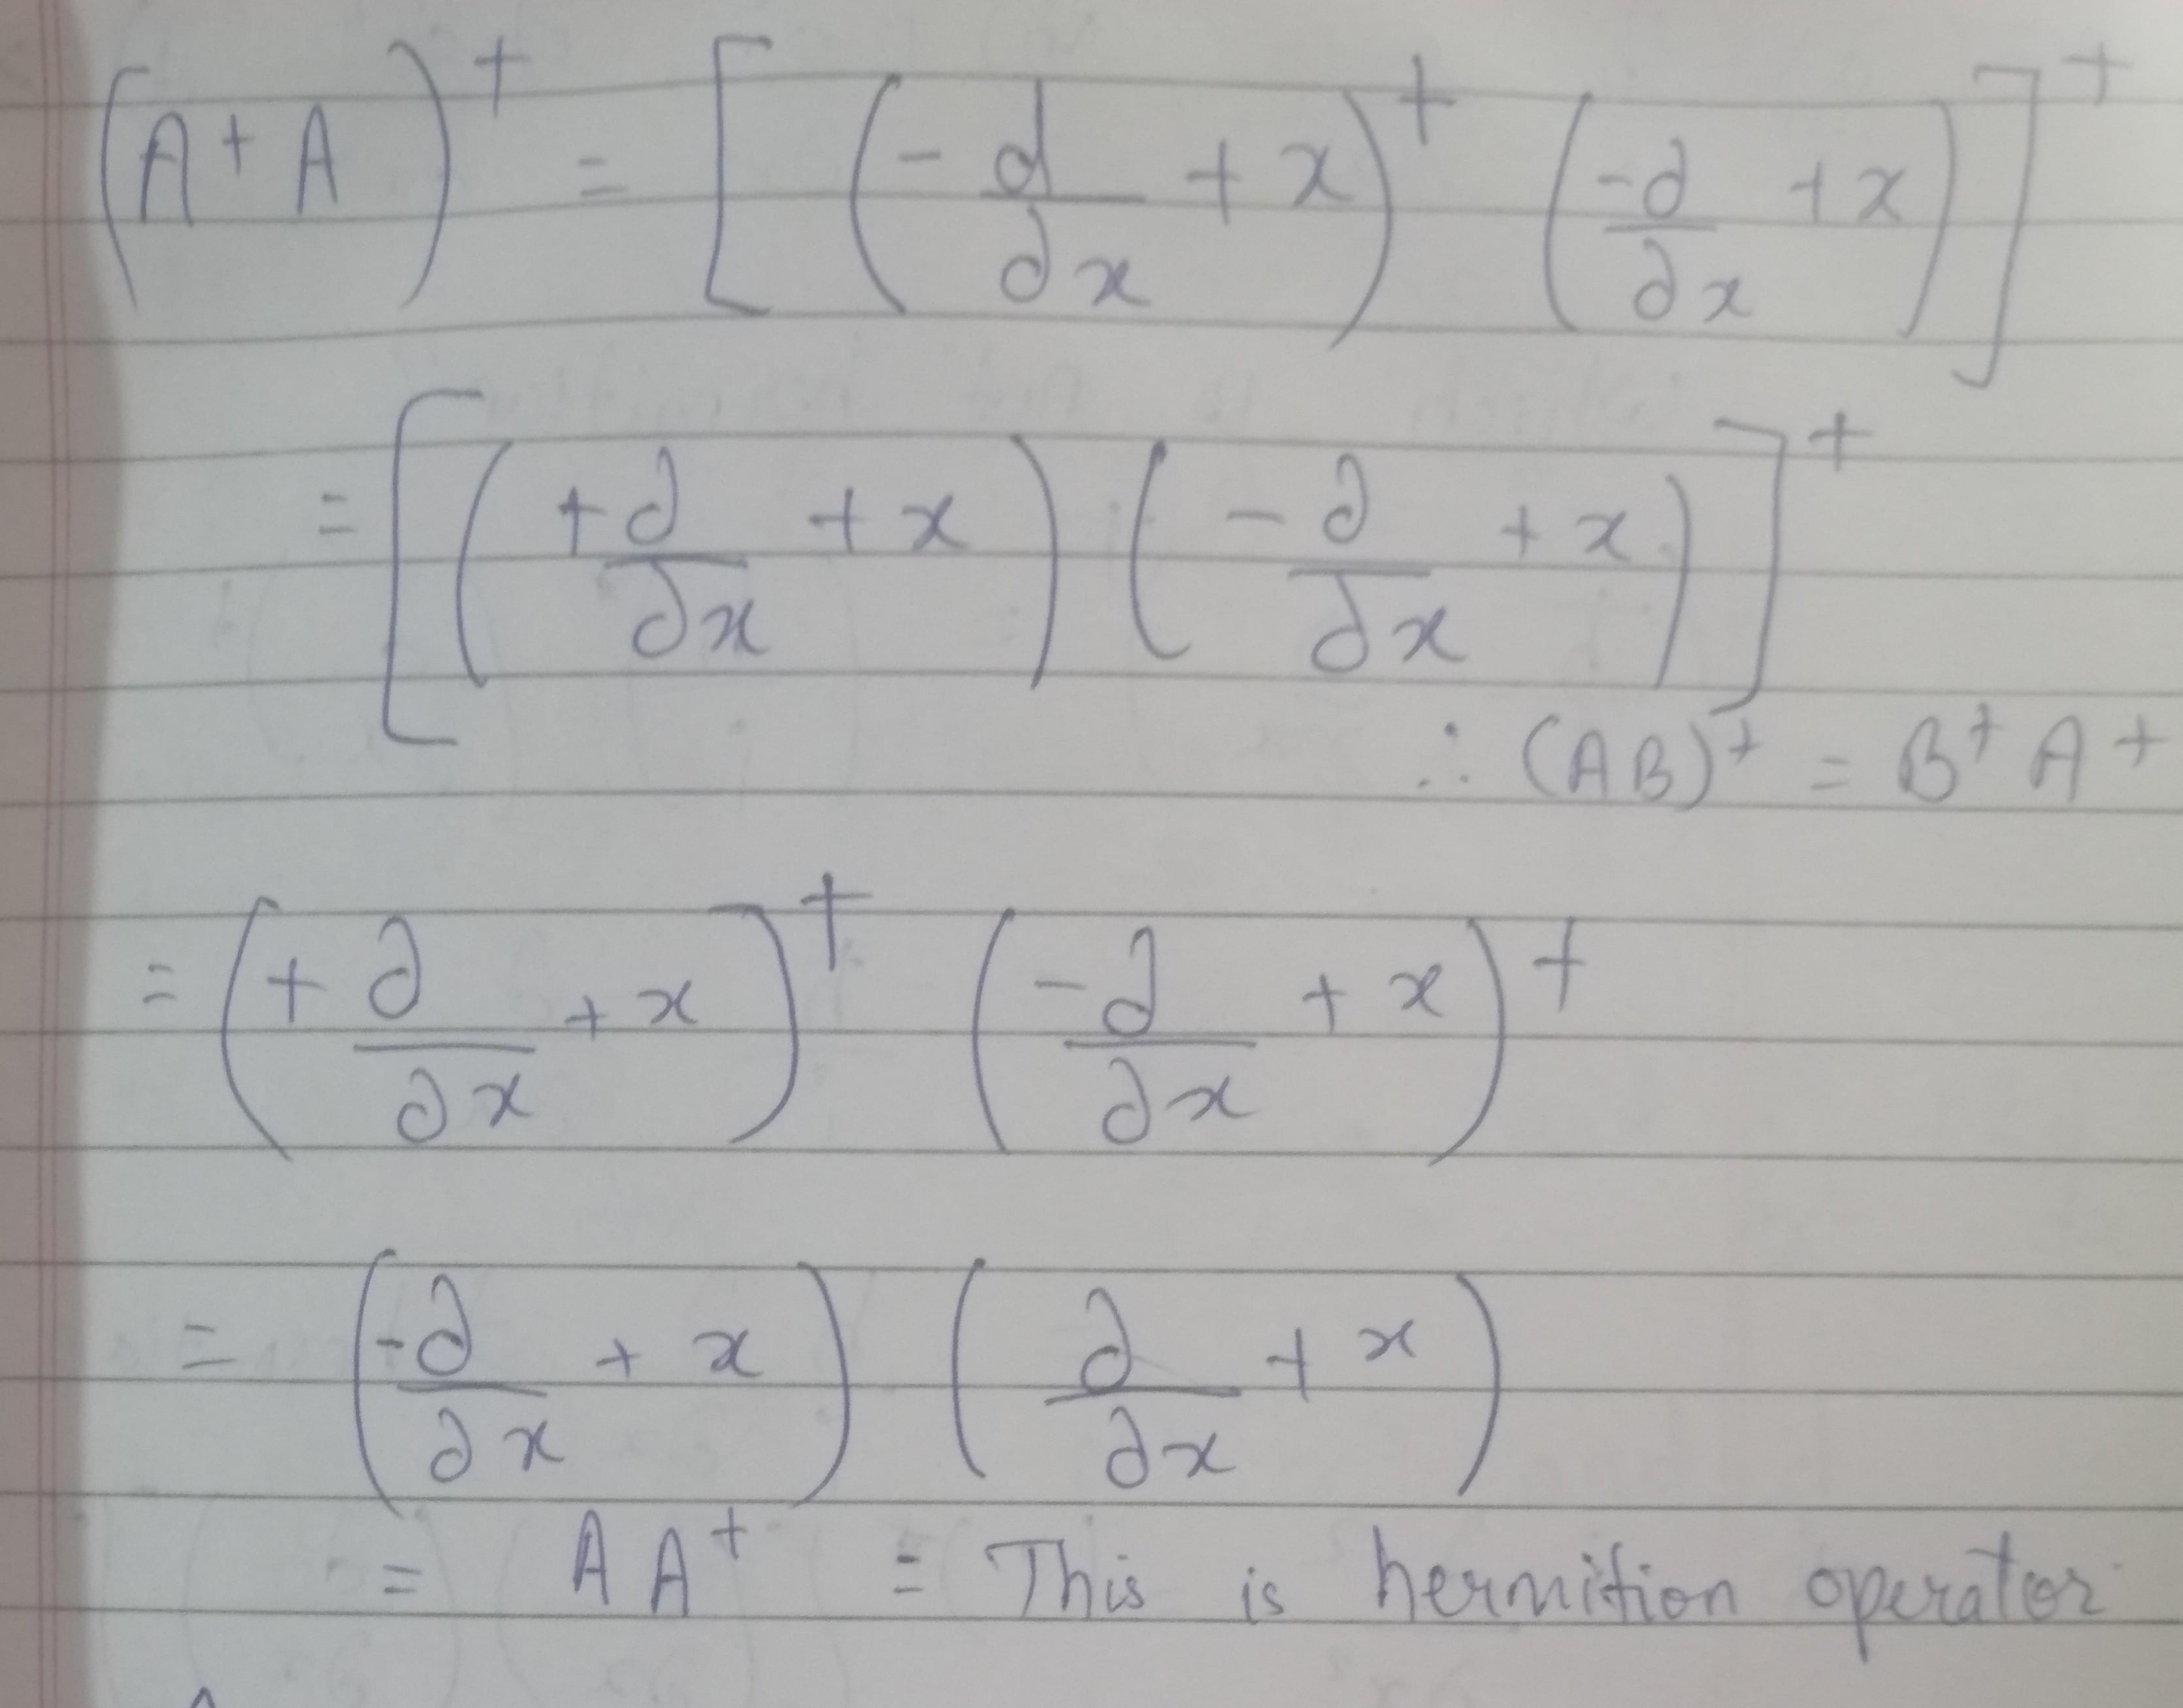 (A⁺ A)⁺ = [(-d/dx + x)⁺ (-∂/∂x + x)]⁺
= [(+∂/∂x + x) (-∂/∂x + x)]⁺
∴ (AB)⁺ = B⁺ A⁺
= (+∂/∂x + x)⁺ (-∂/∂x + x)⁺
= (-∂/∂x + x) (∂/∂x + x)
= A A⁺ = This is hermition operator